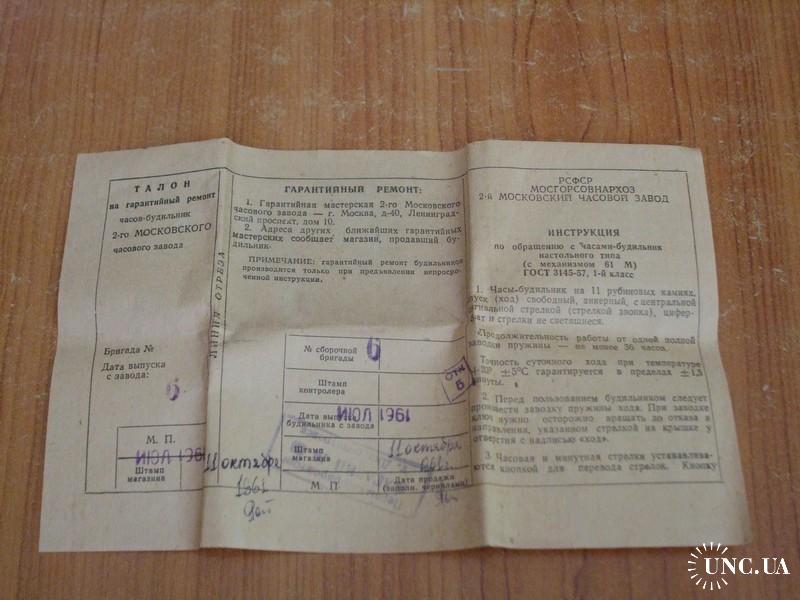 ТАЛОН
на гарантийный ремонт
часов-будильник
2-го МОСКОВСКОГО
часового завода
Бригада №
Дата выпуска
с завода:
6
М. П.
ИЮЛ 1961
Штамп
магазина
ЛИНИЯ ОТРЕЗА
11 октября
1961
ГАРАНТИЙНЫЙ РЕМОНТ:
1. Гарантийная мастерская 2-го Московского
часового завода — г. Москва, д-40, Ленинград-
ский проспект, дом 10.
2. Адреса других ближайших гарантийных
мастерских сообщает магазин, продавший бу-
дильник.
ПРИМЕЧАНИЕ: гарантийный ремонт будильников
производится только при предъявлении непросро-
ченной инструкции.
№ сборочной
бригады
6
Штамп
контролера
ОТК
6
Дата выпуска
будильника с завода
ИЮЛ 1961
Штамп
магазина
11 октября
1961г.
М П
Дата продажи
(заполн. чернилами)
РСФСР
МОСГОРСОВНАРХОЗ
2-й МОСКОВСКИЙ ЧАСОВОЙ ЗАВОД
ИНСТРУКЦИЯ
по обращению с Часами-будильник
настольного типа
(с механизмом 61 М)
ГОСТ 3145-57, 1-й класс
1. Часы-будильник на 11 рубиновых камнях,
спуск (ход) свободный, анкерный, с центральной
сигнальной стрелкой (стрелкой звонка), цифер-
блат и стрелки не светящиеся.
Продолжительность работы от одной полной
заводки пружины — не менее 36 часов.
Точность суточного хода при температуре
+20° ±5°С гарантируется в пределах ±1,5
минуты.
2. Перед пользованием будильником следует
произвести заводку пружины хода. При заводке
ключ нужно осторожно вращать до отказа в
направлении, указанном стрелкой на крышке у
отверстия с надписью «ход».
3 Часовая и минутная стрелки устанавлива-
ются кнопкой для перевода стрелок. Кнопку
UNC.UA